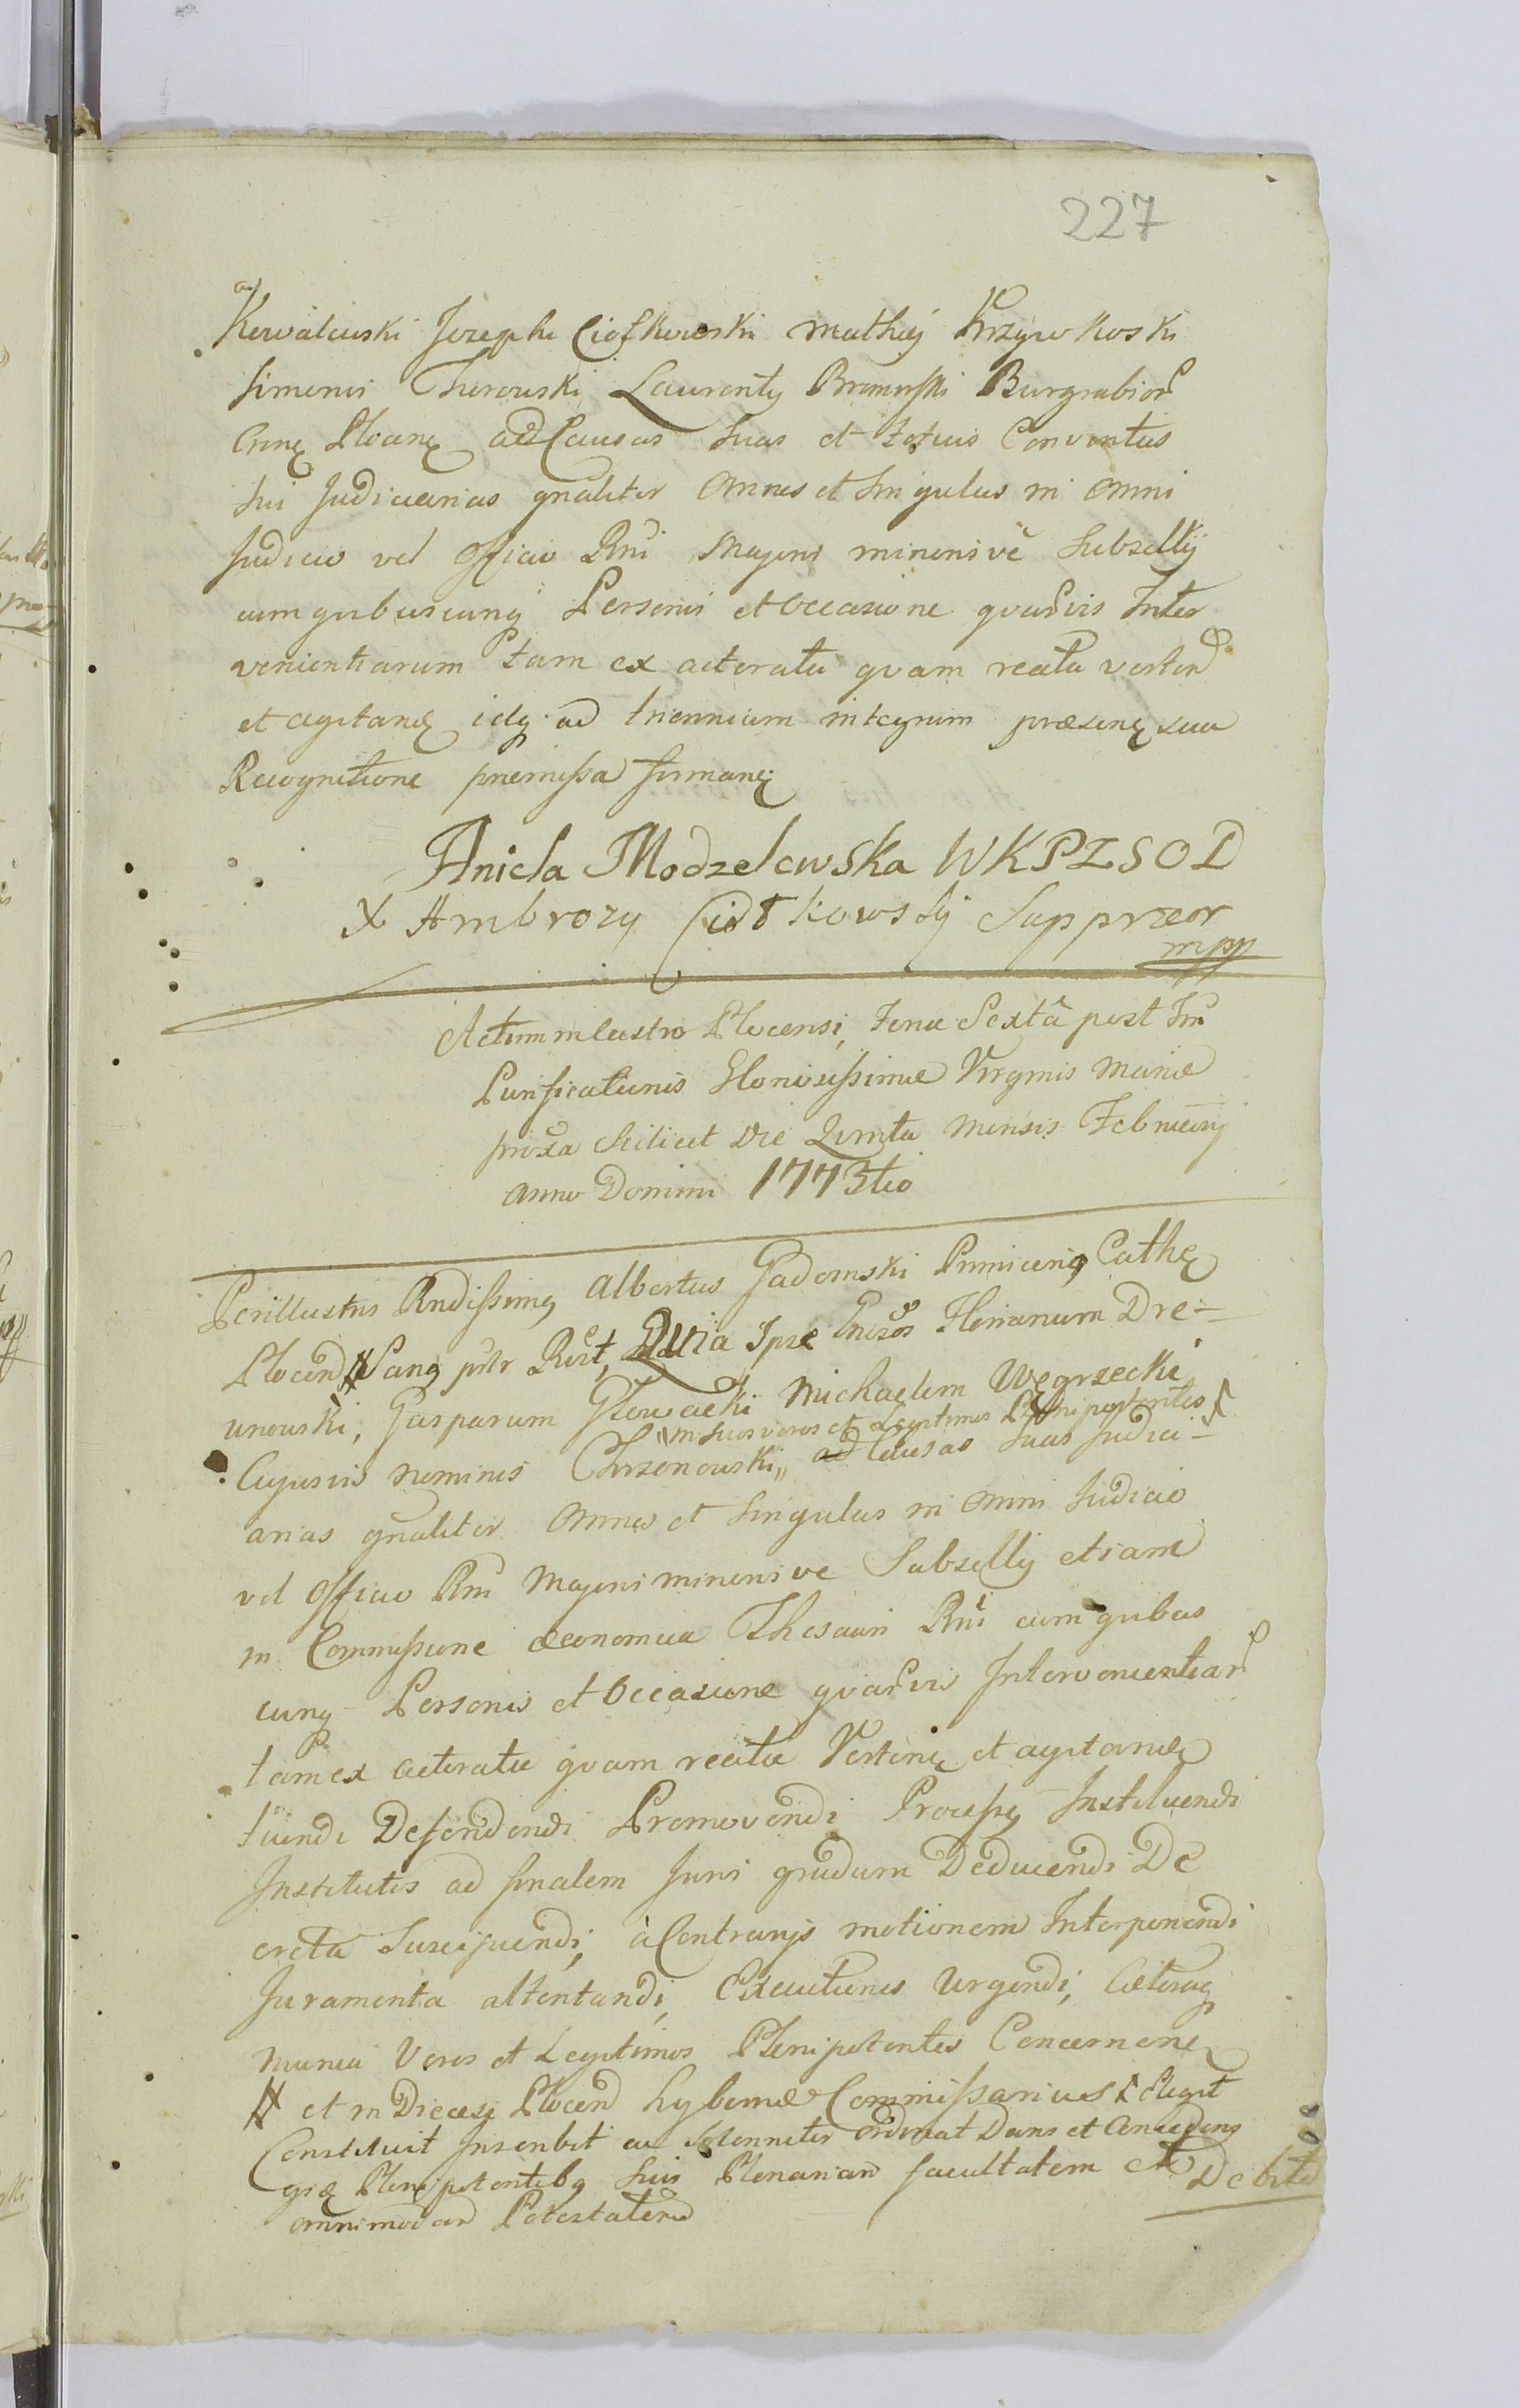 227
Kowalewski Josephi Ciołkowski Mathię Krzywkoski
Simonis Thurowski Laurenty Bromirski Burgrabior
ad Causas Suas et totius Conventus
sui Judiciarias gnaliter Omnes et Singulas in omni
Judicio vel Officio Rni Majoris minorisve Subsellij
cumquibuscunq Personis et Occasione quarvis Inter
venientiarum tam ex actoratu quam reatu verten
et agitanę idq ad triennium integrum præsenę sua
Recognitione præmissa firmanę
Aniela Modzelewska WKPZSOD
X Ambrozy Ciołkowsky Suppræor
mpp
Actum in Castro Plocensi, Feria Sexta post Fm
Purificationis Gloriosissimæ Virginis Mariæ
proxa Scilicet Die Quinta Mensis Februarij
Anno Domini 1773tio
Perillustris Rndissimq Albertus Gadomski Primicerię Cathę
Plocen # Sanq pntr Rcт, Quia Ipse Gnros Florianum Dre-
wnowski, Gasparum Głowacki Michaelem Węgrzecki
"in suos veros et Legitimos Plenipotentes
Cujusvis nominis Chrzonowski,, ad Causas Suas Judici-
arias gnaliter Omnes et Singulas in Omni Judicio
vel Officio Rni Majoris minorisve Subsellij etiam
in Commissione œconomica Thesauri Rni cum quibus
cunq Personis et Occasione quarvis Intervenientiar
tam ex actoratu quam reatu Vertenę et agitandę
tuendi Defendendi Promovendi Processę Instituendi
Institutos ad finalem Juris gradum Deducendi De
creta Suscipiendi, à Contrarijs motionem Interponendi
Juramenta attentandi, Executiones Urgendi, Cæteraq
munia Veros et Legitimos Plenipotentes Concernenę
# et in Diœcesi Plocen hybernæ Commissarius Elegit
Constituit Inscribit ac Solenniter ordinat Dans et Concedens
Plenipotentibq suis Plenariam facultatem et
omnimodam Potestatem
Debite